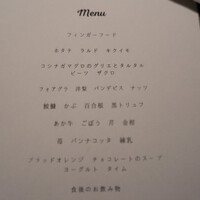 Menu
フィンガーフード
ホタテ ラルド キャイモ
コシナガマグロのグリエとタルタル
ビーツ ザクロ
フォアグラ 洋梨 パンデピス ナッツ
かぶ 百合根 黒トリュフ
あか牛 ごぼう 芹 金柑
苺 パンナコッタ 練乳
ブラッドオレンジ チョコレートのスープ
ヨーグルト タイム
食後のお飲み物